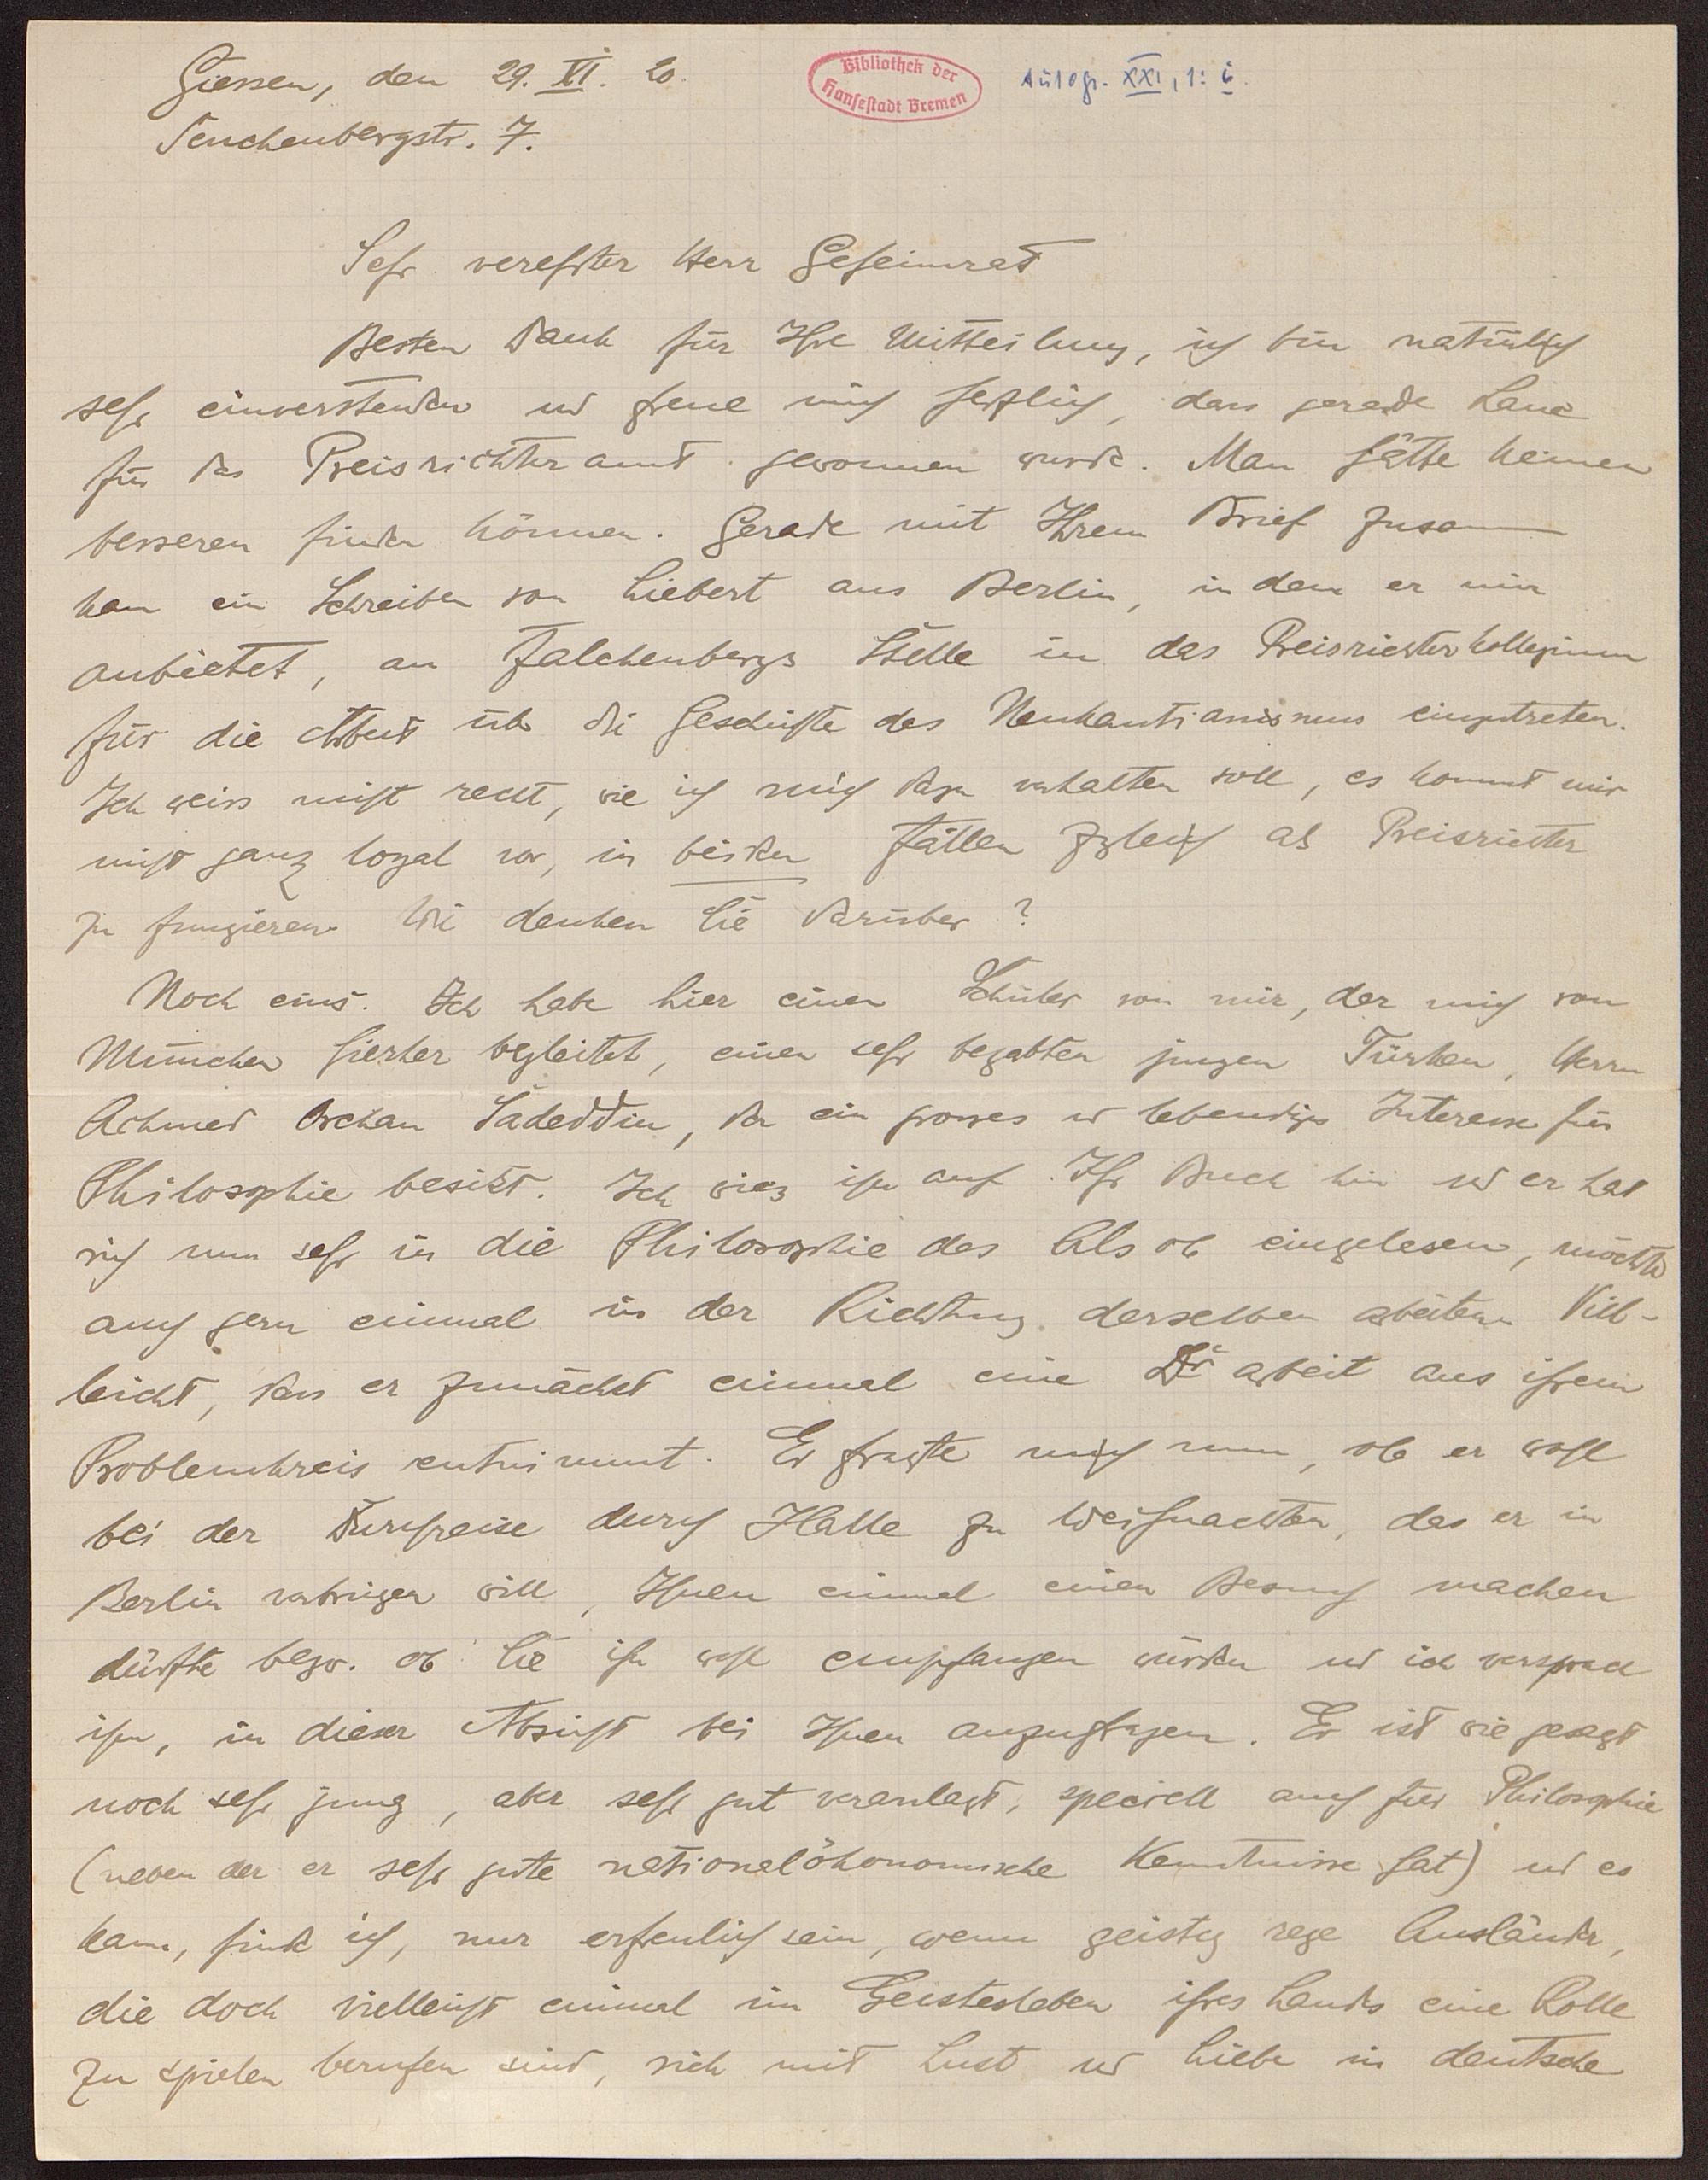 Giessen, den 29. XI. 20.
Bibliothek der
Hansestadt Bremen
Autogr. XXI, 1: i.
Senckenbergstr. 7.
Sehr verehrter Herr Geheimrat
Besten Dank für Ihre Mitteilung, ich bin natürlich
sehr einverstanden und freue mich herzlich, dass gerade Laue
für das Preisrichteramt gewonnen wurde. Man hätte keinen
besseren finden können. Gerade mit Ihrem Brief zusammen
kam ein Schreiben von Liebert aus Berlin, in dem er mir
anbietet, an Falckenbergs Stelle in das Preisrichterkollegium
für die Arbeit über die Geschichte des Neukantianismus einzutreten.
Ich weiss nicht recht, wie ich mich dazu verhalten soll, es kommt mir
nicht ganz loyal vor, in beiden Fällen zugleich als Preisrichter
zu fungieren. Wie denken Sie darüber?
Noch eins. Ich habe hier einen Schüler von mir, der mich von
München hierher begleitet, einen sehr begabten jungen Türken, Herrn
Achmed Orchan Sadeddin, der ein grosses und lebendiges Interesse für
Philosophie besitzt. Ich wies ihn auf Ihr Buch hin und er hat
sich nun sehr in die Philosophie des Als ob eingelesen, möchte
auch gern einmal in der Richtung derselben arbeiten. Viel-
leicht, dass er zunächst einmal eine Dr arbeit aus ihrem
Problemkreis entnimmt. Er fragte mich nun, ob er wohl
bei der Durchreise durch Halle zu Weihnachten, das er in
Berlin verbringen will, Ihnen einmal einen Besuch machen
dürfte bezw. ob Sie ihn wohl empfangen würden und ich versprach
ihm, in dieser Absicht bei Ihnen anzufragen. Er ist wie gesagt
noch sehr jung, aber sehr gut veranlagt, speciell auch für Philosophie
(neben der er sehr gute nationalökonomische Kenntnisse hat) und es
kann, finde ich, nur erfreulich sein, wenn geistig rege Ausländer,
die doch vielleicht einmal im Geistesleben ihres Landes eine Rolle
zu spielen berufen sind, sich mit Lust und Liebe in deutsche